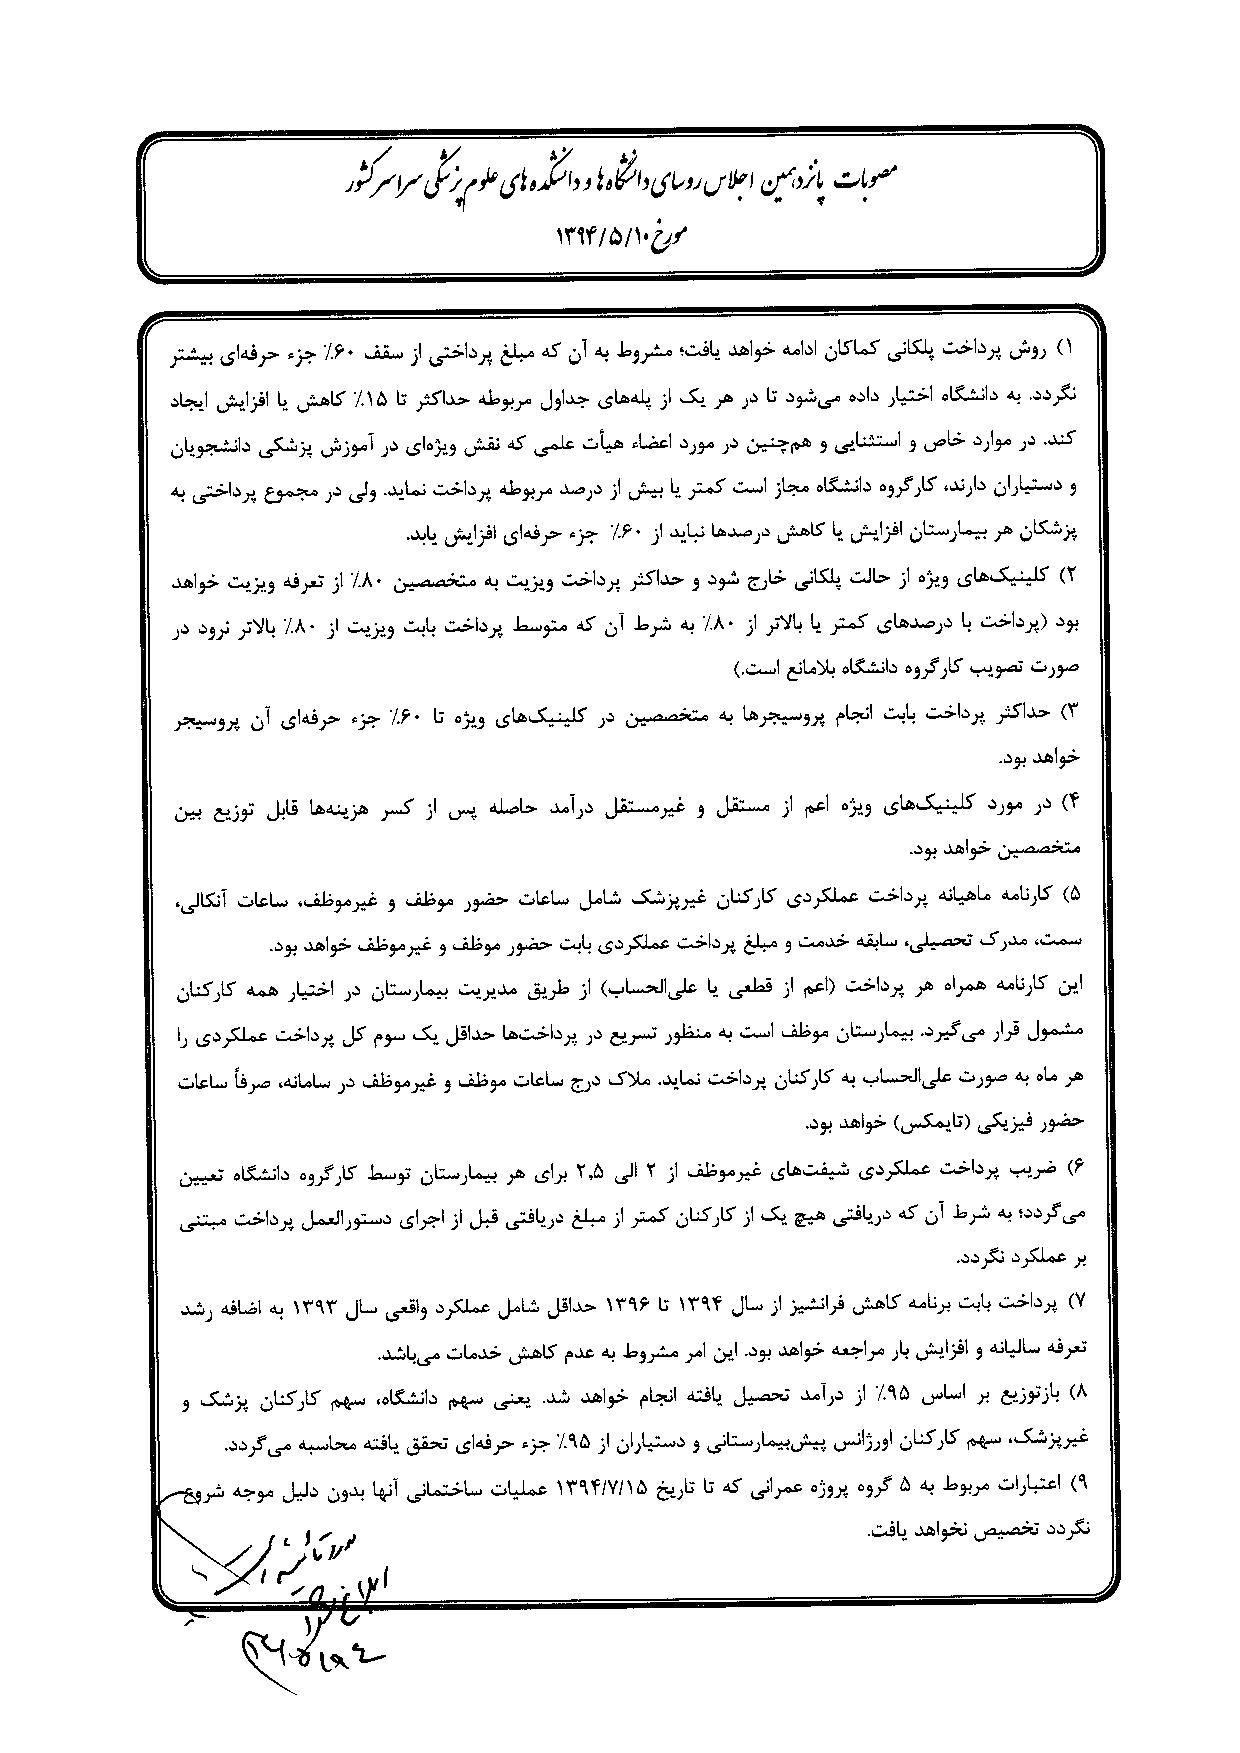 مصوبات پانزدهمین اجلاس روسای دانشگاه‌ها و دانشکده‌های علوم پزشکی سراسر کشور
مورخ ۱۳۹۴/۵/۱۰
۱) روش پرداخت پلکانی کماکان ادامه خواهد یافت؛ مشروط به آن که مبلغ پرداختی از سقف ۶۰٪ جزء حرفه‌ای بیشتر
نگردد. به دانشگاه اختیار داده می‌شود تا در هر یک از پله‌های جداول مربوطه حداکثر تا ۱۵٪ کاهش یا افزایش ایجاد
کند. در موارد خاص و استثنایی و هم‌چنین در مورد اعضاء هیأت علمی که نقش ویژه‌ای در آموزش پزشکی دانشجویان
و دستیاران دارند، کارگروه دانشگاه مجاز است کمتر یا بیش از درصد مربوطه پرداخت نماید. ولی در مجموع پرداختی به
پزشکان هر بیمارستان افزایش یا کاهش درصدها نباید از ۶۰٪ جزء حرفه‌ای افزایش یابد.
۲) کلینیک‌های ویژه از حالت پلکانی خارج شود و حداکثر پرداخت ویزیت به متخصصین ۸۰٪ از تعرفه ویزیت خواهد
بود (پرداخت با درصدهای کمتر یا بالاتر از ۸۰٪ به شرط آن که متوسط پرداخت بابت ویزیت از ۸۰٪ بالاتر نرود در
صورت تصویب کارگروه دانشگاه بلامانع است.)
۳) حداکثر پرداخت بابت انجام پروسیجرها به متخصصین در کلینیک‌های ویژه تا ۶۰٪ جزء حرفه‌ای آن پروسیجر
خواهد بود.
۴) در مورد کلینیک‌های ویژه اعم از مستقل و غیرمستقل درآمد حاصله پس از کسر هزینه‌ها قابل توزیع بین
متخصصین خواهد بود.
۵) کارنامه ماهیانه پرداخت عملکردی کارکنان غیرپزشک شامل ساعات حضور موظف و غیرموظف، ساعات آنکالی،
سمت، مدرک تحصیلی، سابقه خدمت و مبلغ پرداخت عملکردی بابت حضور موظف و غیرموظف خواهد بود.
این کارنامه همراه هر پرداخت (اعم از قطعی یا علی‌الحساب) از طریق مدیریت بیمارستان در اختیار همه کارکنان
مشمول قرار می‌گیرد. بیمارستان موظف است به منظور تسریع در پرداخت‌ها حداقل یک سوم کل پرداخت عملکردی را
هر ماه به صورت علی‌الحساب به کارکنان پرداخت نماید. ملاک درج ساعات موظف و غیرموظف در سامانه، صرفاً ساعات
حضور فیزیکی (تایمکس) خواهد بود.
۶) ضریب پرداخت عملکردی شیفت‌های غیرموظف از ۲ الی ۲,۵ برای هر بیمارستان توسط کارگروه دانشگاه تعیین
می‌گردد؛ به شرط آن که دریافتی هیچ یک از کارکنان کمتر از مبلغ دریافتی قبل از اجرای دستورالعمل پرداخت مبتنی
بر عملکرد نگردد.
۷) پرداخت بابت برنامه کاهش فرانشیز از سال ۱۳۹۴ تا ۱۳۹۶ حداقل شامل عملکرد واقعی سال ۱۳۹۳ به اضافه رشد
تعرفه سالیانه و افزایش بار مراجعه خواهد بود. این امر مشروط به عدم کاهش خدمات می‌باشد.
۸) بازتوزیع بر اساس ۹۵٪ از درآمد تحصیل یافته انجام خواهد شد. یعنی سهم دانشگاه، سهم کارکنان پزشک و
غیرپزشک، سهم کارکنان اورژانس پیش‌بیمارستانی و دستیاران از ۹۵٪ جزء حرفه‌ای تحقق یافته محاسبه می‌گردد.
۹) اعتبارات مربوط به ۵ گروه پروژه عمرانی که تا تاریخ ۱۳۹۴/۷/۱۵ عملیات ساختمانی آنها بدون دلیل موجه شروع
نگردد تخصیص نخواهد یافت.